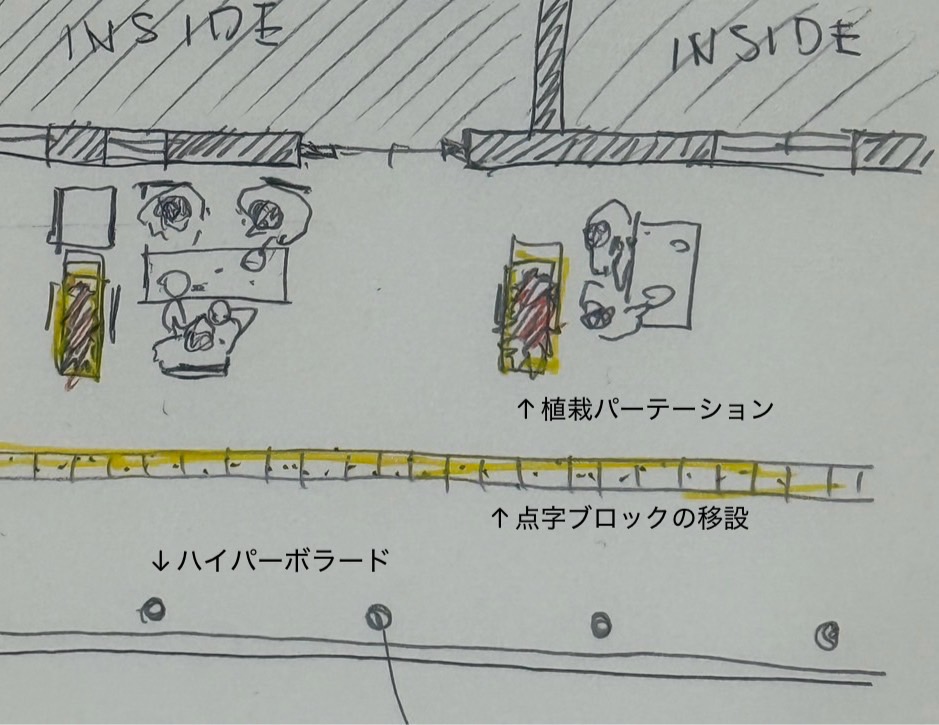 INSIDE
INSIDE
↑植栽パーテーション
↑点字ブロックの移設
↓ハイパーボラード